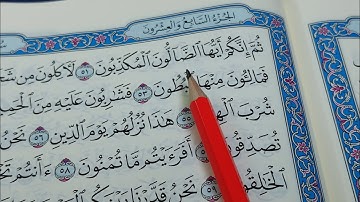 الجزء السابع والعشرون
ثُمَّ إِنَّكُمْ أَيُّهَا الضَّالُّونَ الْمُكَذِّبُونَ ٥١ لَآكِلُونَ مِن
فَمَالِئُونَ مِنْهَا ٥٣ فَشَارِبُونَ عَلَيْهِ مِنَ
شُرْبَ ٥٥ هَٰذَا نُزُلُهُمْ يَوْمَ الدِّينِ ٥٦ نَحْنُ
تُصَدِّقُونَ ٥٧ أَفَرَأَيْتُم مَّا تُمْنُونَ ٥٨ ءَأَنتُمْ
الْخَالِقُونَ ٥٩ نَحْنُ قَدَّرْنَا